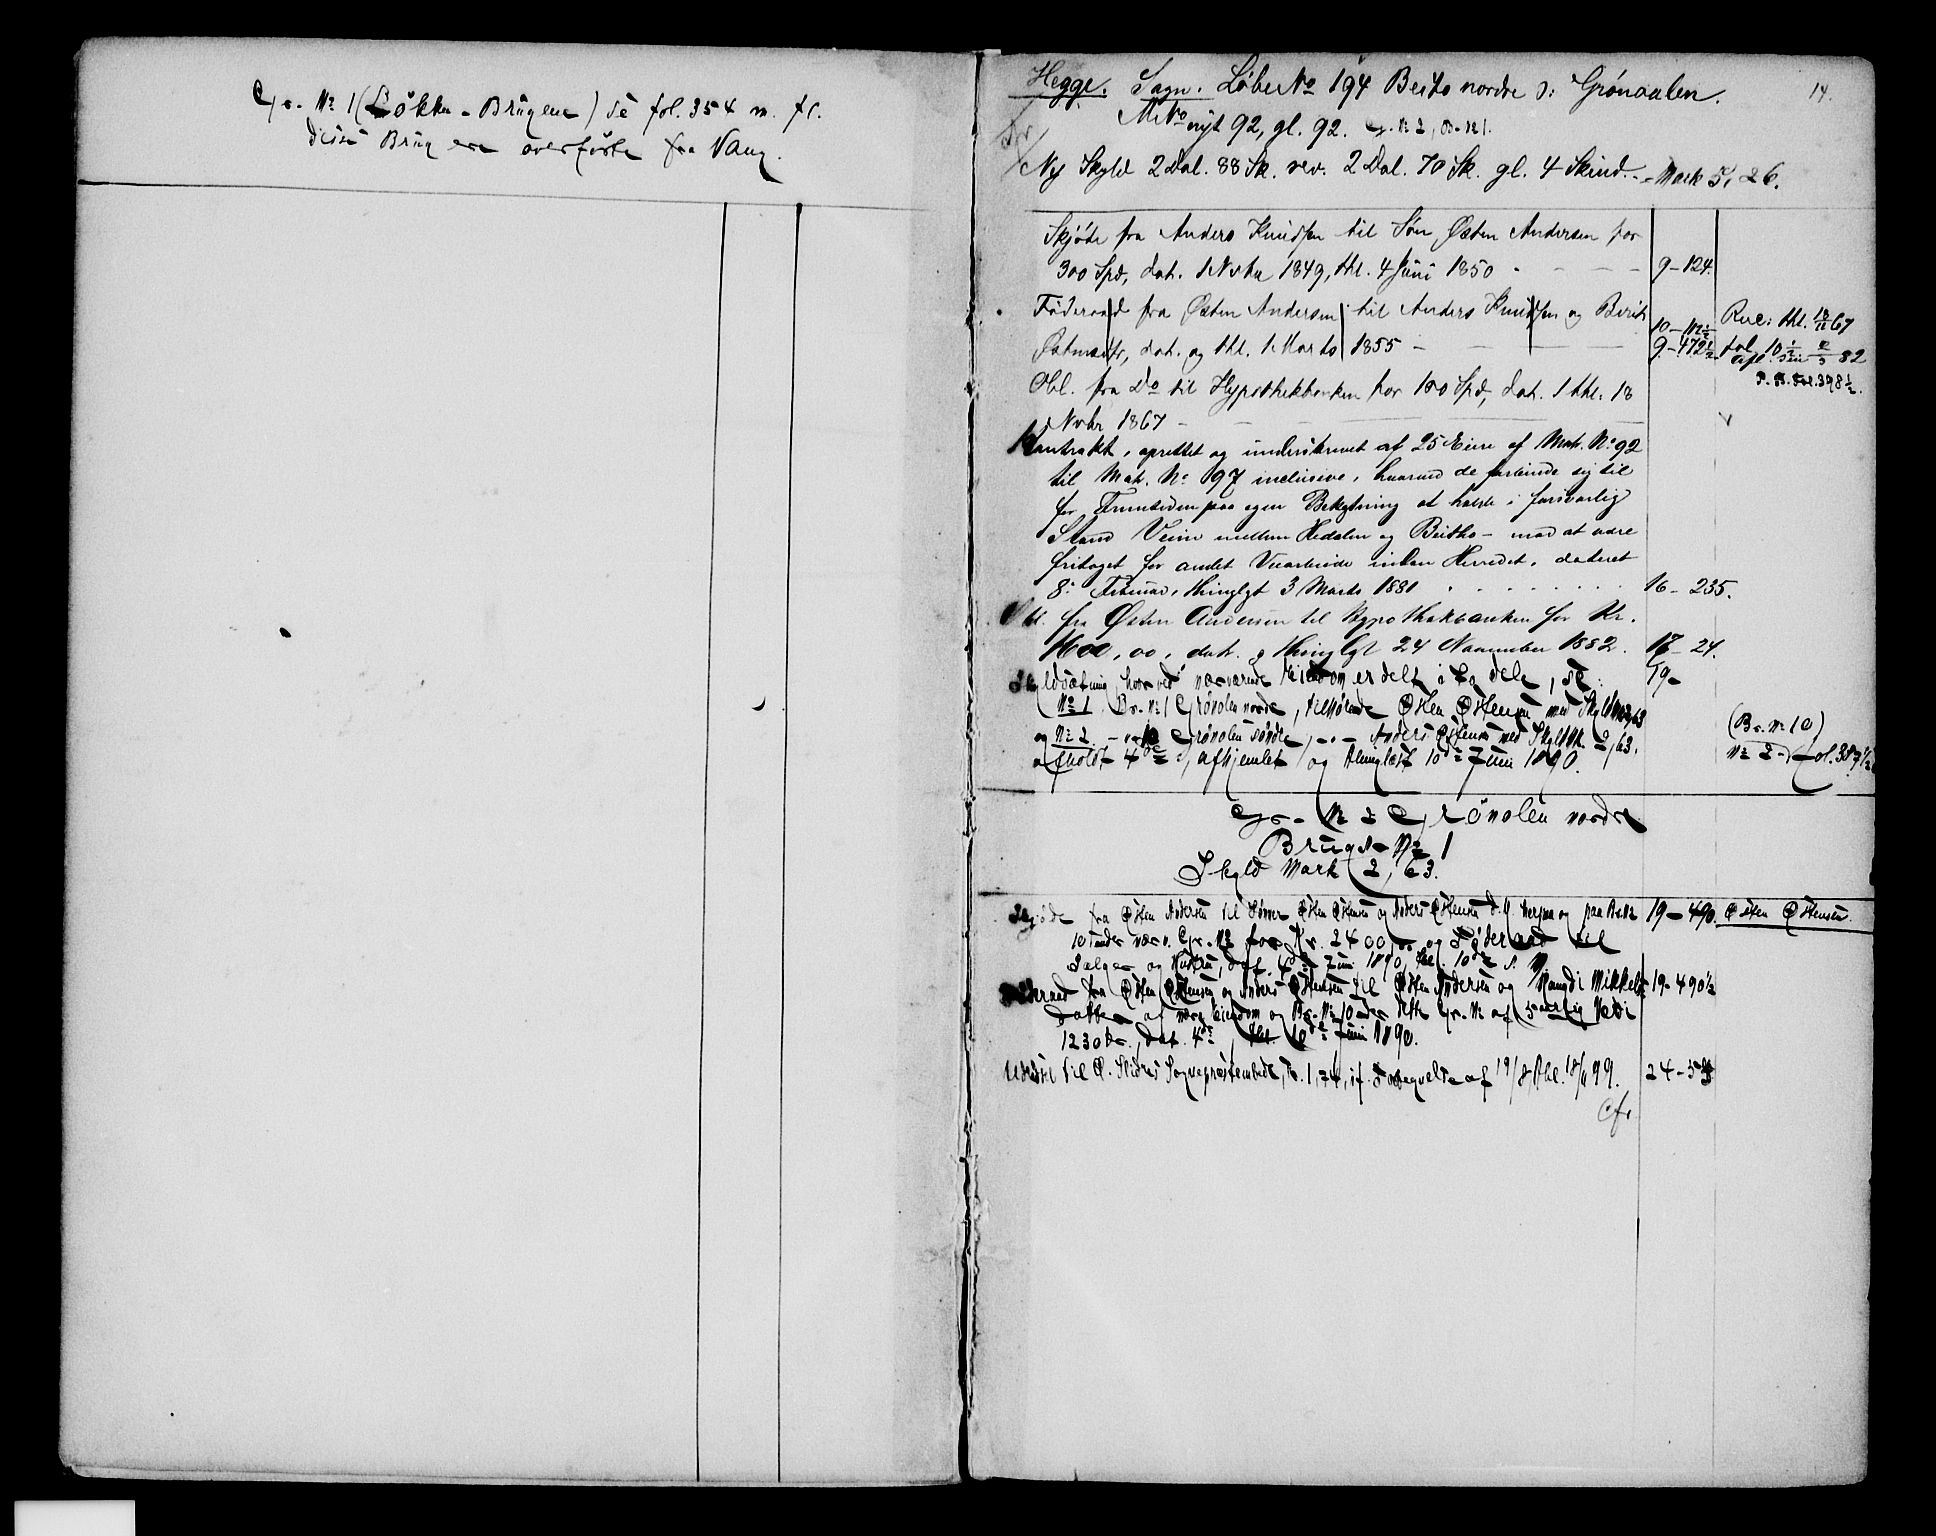 Gr. № 1 (Løkken-Brugene) se fol. 354 m. fl.
disse Brug ere overførte fra Vang.
Hegge. Sogn. Løbe No 194 Beito nordre o: Grønaalen. 14.
M No nyt 92, gl. 92. G. № 2, B. № 1.
Ny Skyld 2 Dal. 88 Sk. rev. 2 Dal. 70 Sk. gl. 4 Skind. - Mark 5,26.
Skjøde fra Anders Knudsen til Søn Østen Andersen for
300 Spd, dat. 1 Nvbr 1849, thl. 4 Juni 1850 - - - - 9-124.
Føderaad fra Østen Andersen til Anders Knudsen og Berit
Østensdtr, dat. og thl. 1 Marts 1855 - - - 9-472½
Obl. fra Do til Hypothekbanken for 180 Spd, dat. 1 thl. 18
Nvbr 1867 - - - - 10-112½ Rec: thl. 18/11 67
fol. 10½ 82
P. B. fol. 398½.
Kontrakt, oprettet og underskrevet af 25 Eiere af Matr. No 92
til Matr. No 97 inclusive, hvorved de forbinde sig til
for Fremtiden paa egen Bekostning at holde i forsvarlig
Stand Veien mellem Hedalen og Beitho - mod at være
fritaget for andet Veiarbeide inden Herredet, dateret
8de Februar, thinglyst 3 Marts 1881 . . . . 16-235.
Obl. fra Østen Andersen til Hypothekbanken for Kr.
1600,00, dat. og thinglyst 24 November 1882. 17-24.
Skyldsætning, hvorved nærværende Eiendom er delt i to dele, se: 19-
No 1 Br. № 1 Grønolen nordre, tilhørende Østen Østensen med Skyld Mk 2,63
og № 2 - " 10 Grønolen søndre, - " - Anders Østensen med Skyld Mk. 2,63. (Br. № 10)
afholdt 4de, afhjemlet og thinglæst 10de Juni 1890. № 2 - fol. 387½
Gr. № 2 Grønolen nordre
Brugs-№ 1
Skyld Mark 2,63.
Skjøde fra Østen Andersen til Sønner Østen Østensen og Anders Østensen d.y. herpaa og paa Br. № 19-490. Østen Østensen.
10 under nærv. Gr. № for Kr. 2400,00 og Føderaad til
Sælger og Hustru, dat. 4de Juni 1890, thl. 10de s. M.
Føderaad fra Østen Østensen og Anders Østensen til Østen Andersen og Rangdi Mikkels- 19-490½
datter af nærv. Eiendom og Br. № 10 under dette Gr. № af 5 aarlig Værdi
1230 Kr., dat. 4de, thl. 10de Juni 1890.
Udskil til Ø. Slidres Sognepræstembede, 1,74, if. af 19/8 thl. 18/11 99. 24-
Cfr.